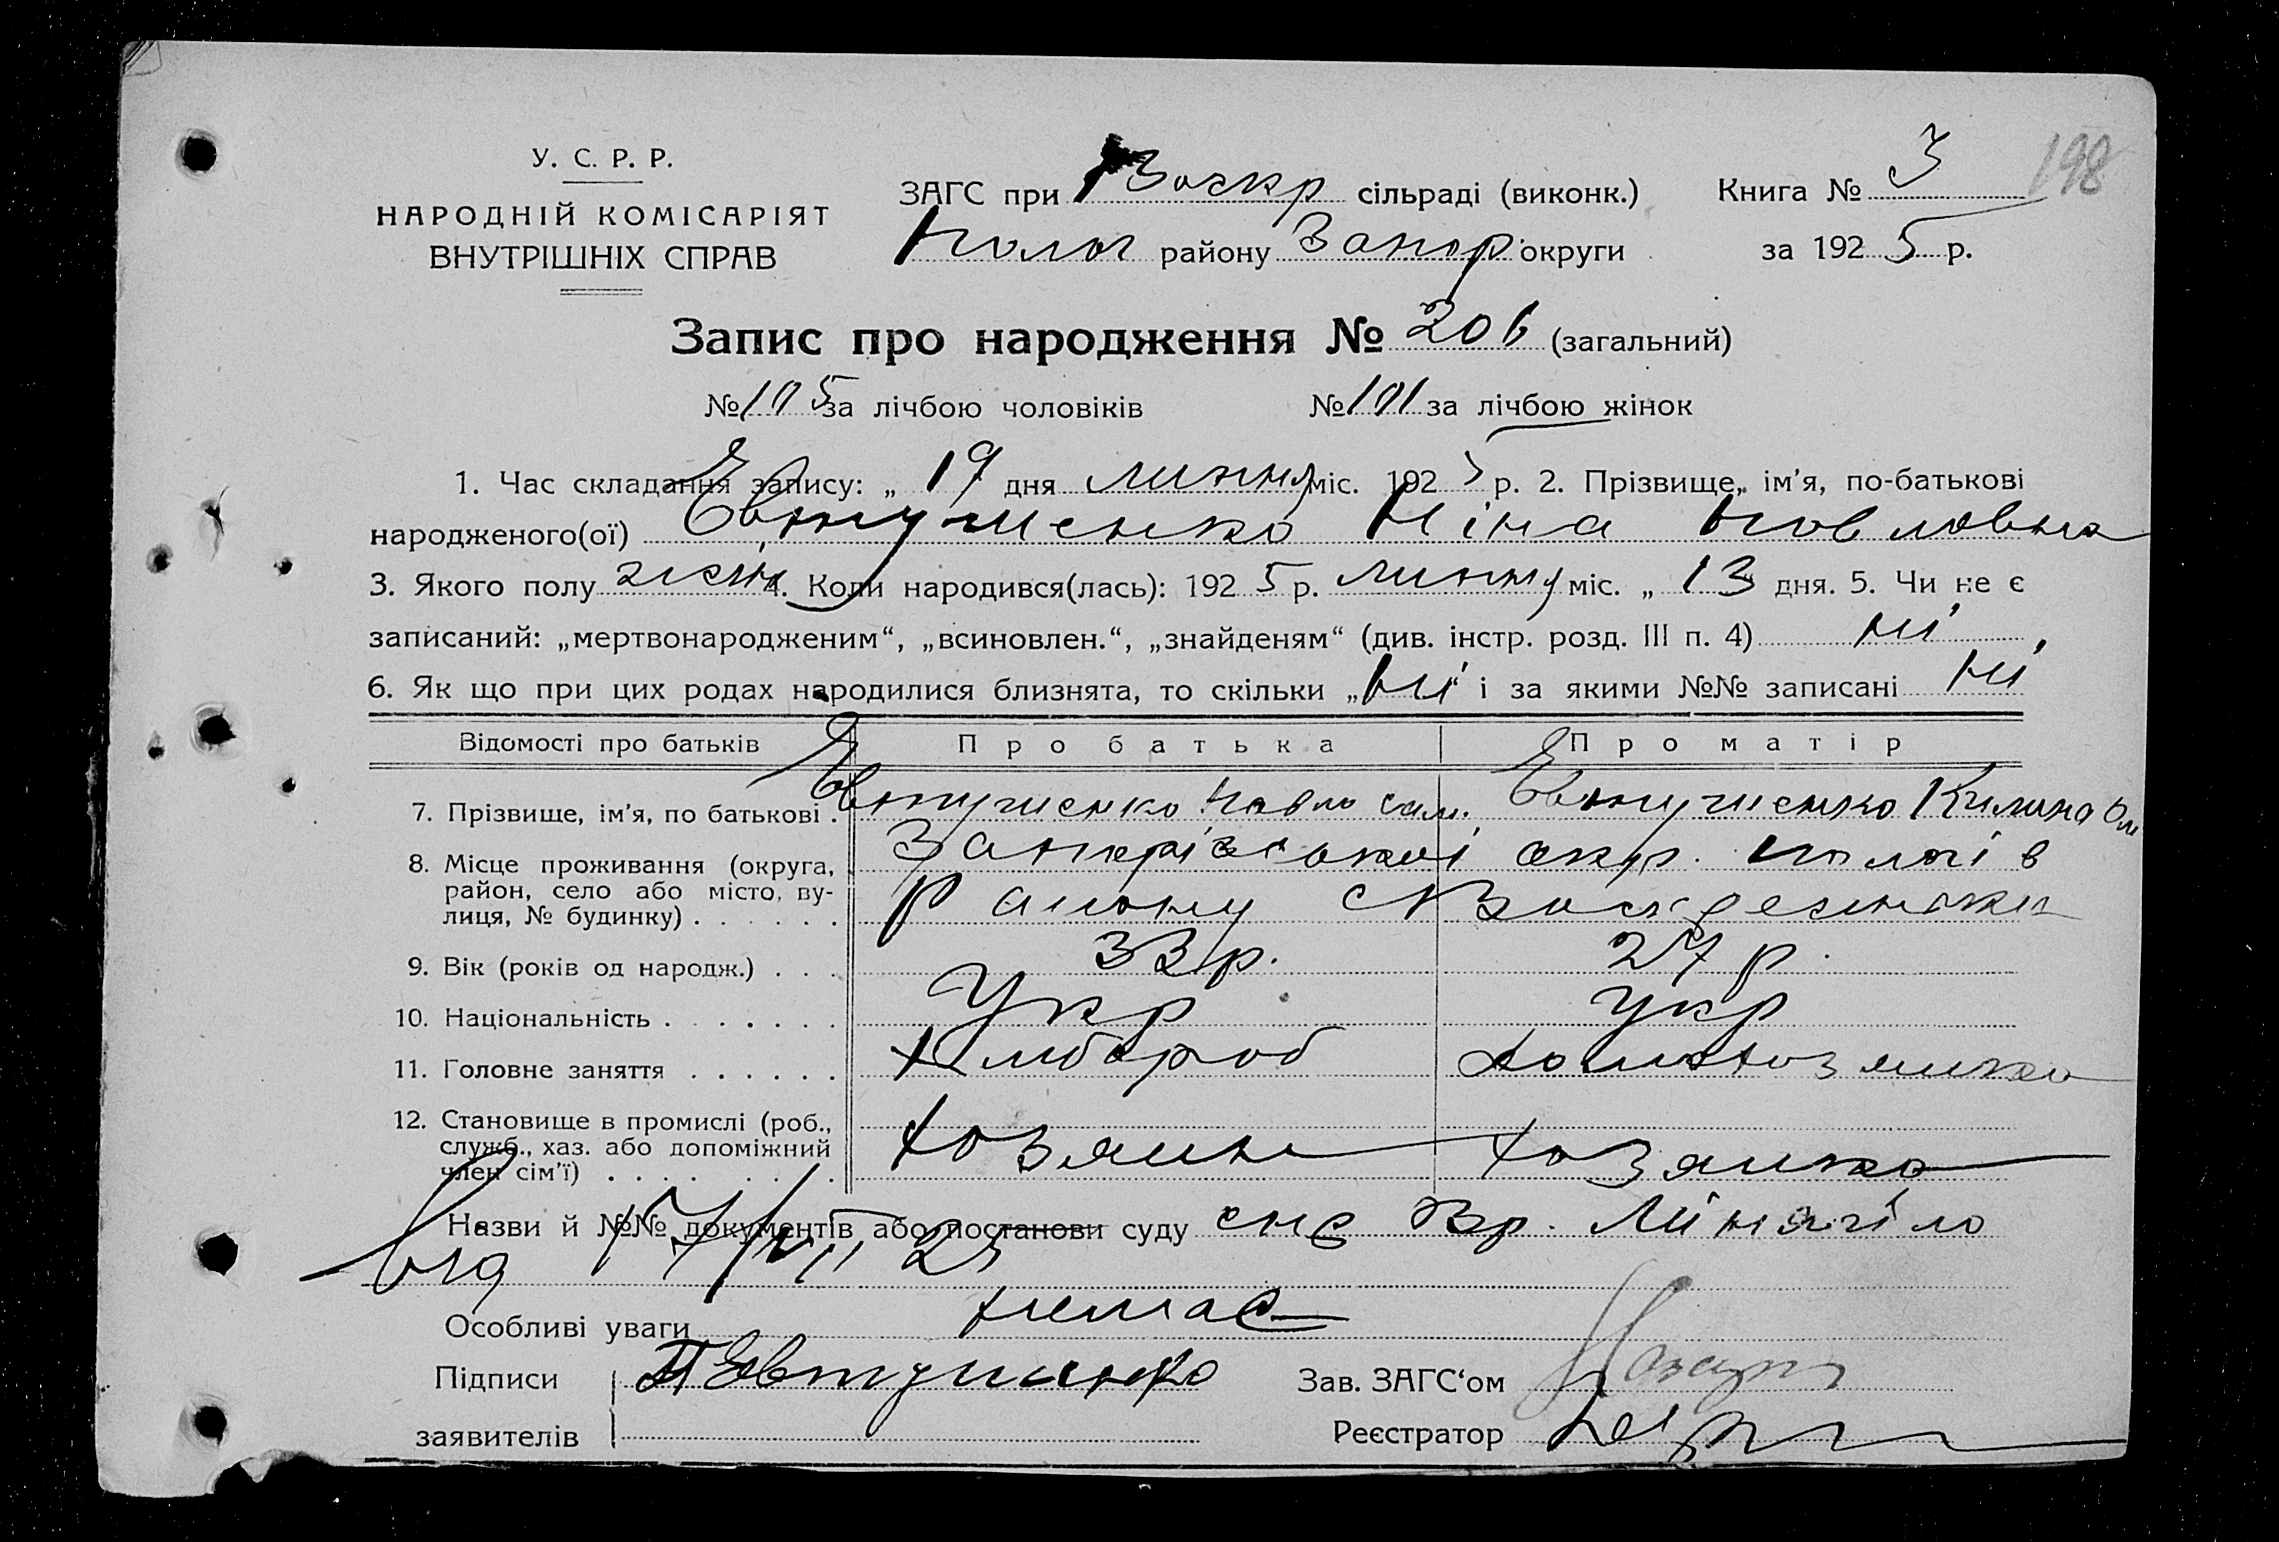 У. С. Р. Р.
НАРОДНІЙ КОМІСАРІЯТ
ВНУТРІШНІХ СПРАВ
ЗАГС при Воскр сільраді (виконк.) Книга № 3 198
Полог району Запор округи за 1925 р.
Запис про народження № 206 (загальний)
№ 105 за лічбою чоловіків № 101 за лічбою жінок
1. Час складання запису: „ 19 дня липня міс. 1925 р. 2. Прізвище, ім’я, по-батькові
народженого(ої) Євтушенко Ніна Павловна
3. Якого полу жін. 4. Коли народився(лась): 1925 р. липня міс. „ 13 дня. 5. Чи не є
записаний: „мертвонародженим“, „всиновлен.“, „знайденям“ (див. інстр. розд. III п. 4) ні
6. Як що при цих родах народилися близнята, то скільки „ні“ і за якими №№ записані ні
Відомості про батьків Про батька Про матір
7. Прізвище, ім’я, по батькові . Євтушенко Павло Сам. Євтушенко Килина Ом
8. Місце проживання (округа,
район, село або місто, ву-
лиця, № будинку) . . . . . .
Запорізської окр. Пологів
району с Воскресенська
9. Вік (років од народж.) . . . 33 р. 27 р.
10. Національність . . . . . . . Укр Укр
11. Головне заняття . . . . . . Хлібороб домохозяйка
12. Становище в промислі (роб.,
служб., хаз. або допоміжний
член сім’ї) . . . . . . . .
хозяин хозяйка
Назви й №№ документів або постанови суду
від 17/VII 25
Особливі уваги немає
Підписи ПЄвтушенко Зав. ЗАГС‘ом
заявителів Реєстратор